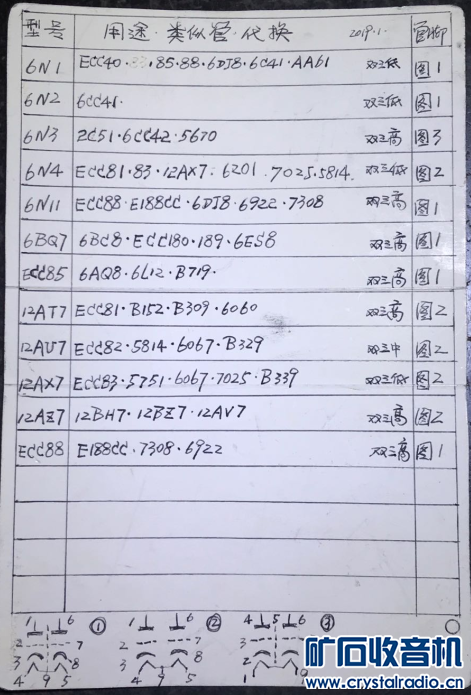 型号 用途·类似管·代换 2019.1. 管脚
6N1 ECC40··85·88·6DJ8·6C41·AA61 双三低 图1
6N2 6CC41· 双三低 图1
6N3 2C51·6CC42·5670 双三高 图3
6N4 ECC81·83·12AX7·6201·7025·5814. 双三低 图2
6N11 ECC88·E188CC·6DJ8·6922·7308 双三高 图1
6BQ7 6BC8·ECC180·189·6ES8 双三高 图1
ECC85 6AQ8·6L12·B719· 双三高 图1
12AT7 ECC81·B152·B309·6060 双三高 图2
12AU7 ECC82·5814·6067·B329 双三中 图2
12AX7 ECC83·5751·6067·7025·B339 双三低 图2
12AZ7 12BH7·12BZ7·12AV7 双三高 图2
ECC88 E188CC·7308·6922 双三高 图1
1 6 ① 1 6 ② 4 5 6 ③
2 7 2 7 3 7
3 8 3 8 2 8
4 9 5 4 9 5 1 9
矿石收音机
www.crystalradio.cn